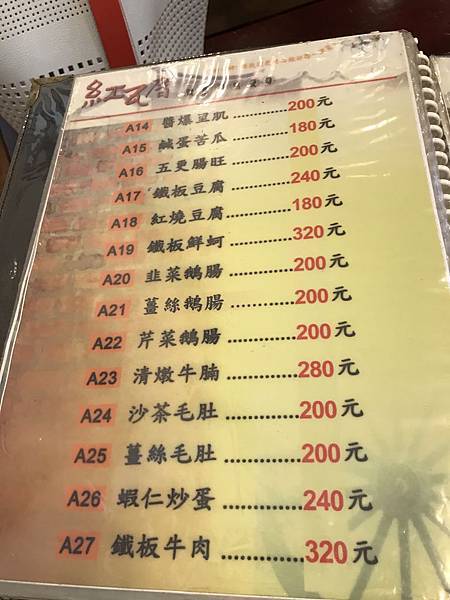 紅瓦厝
A14 醬爆豆肌............200元
A15 鹹蛋苦瓜............180元
A16 五更腸旺............200元
A17 鐵板豆腐............240元
A18 紅燒豆腐............180元
A19 鐵板鮮蚵............320元
A20 韭菜鵝腸............200元
A21 薑絲鵝腸............200元
A22 芹菜鵝腸............200元
A23 清燉牛腩............280元
A24 沙茶毛肚............200元
A25 薑絲毛肚............200元
A26 蝦仁炒蛋............240元
A27 鐵板牛肉............320元